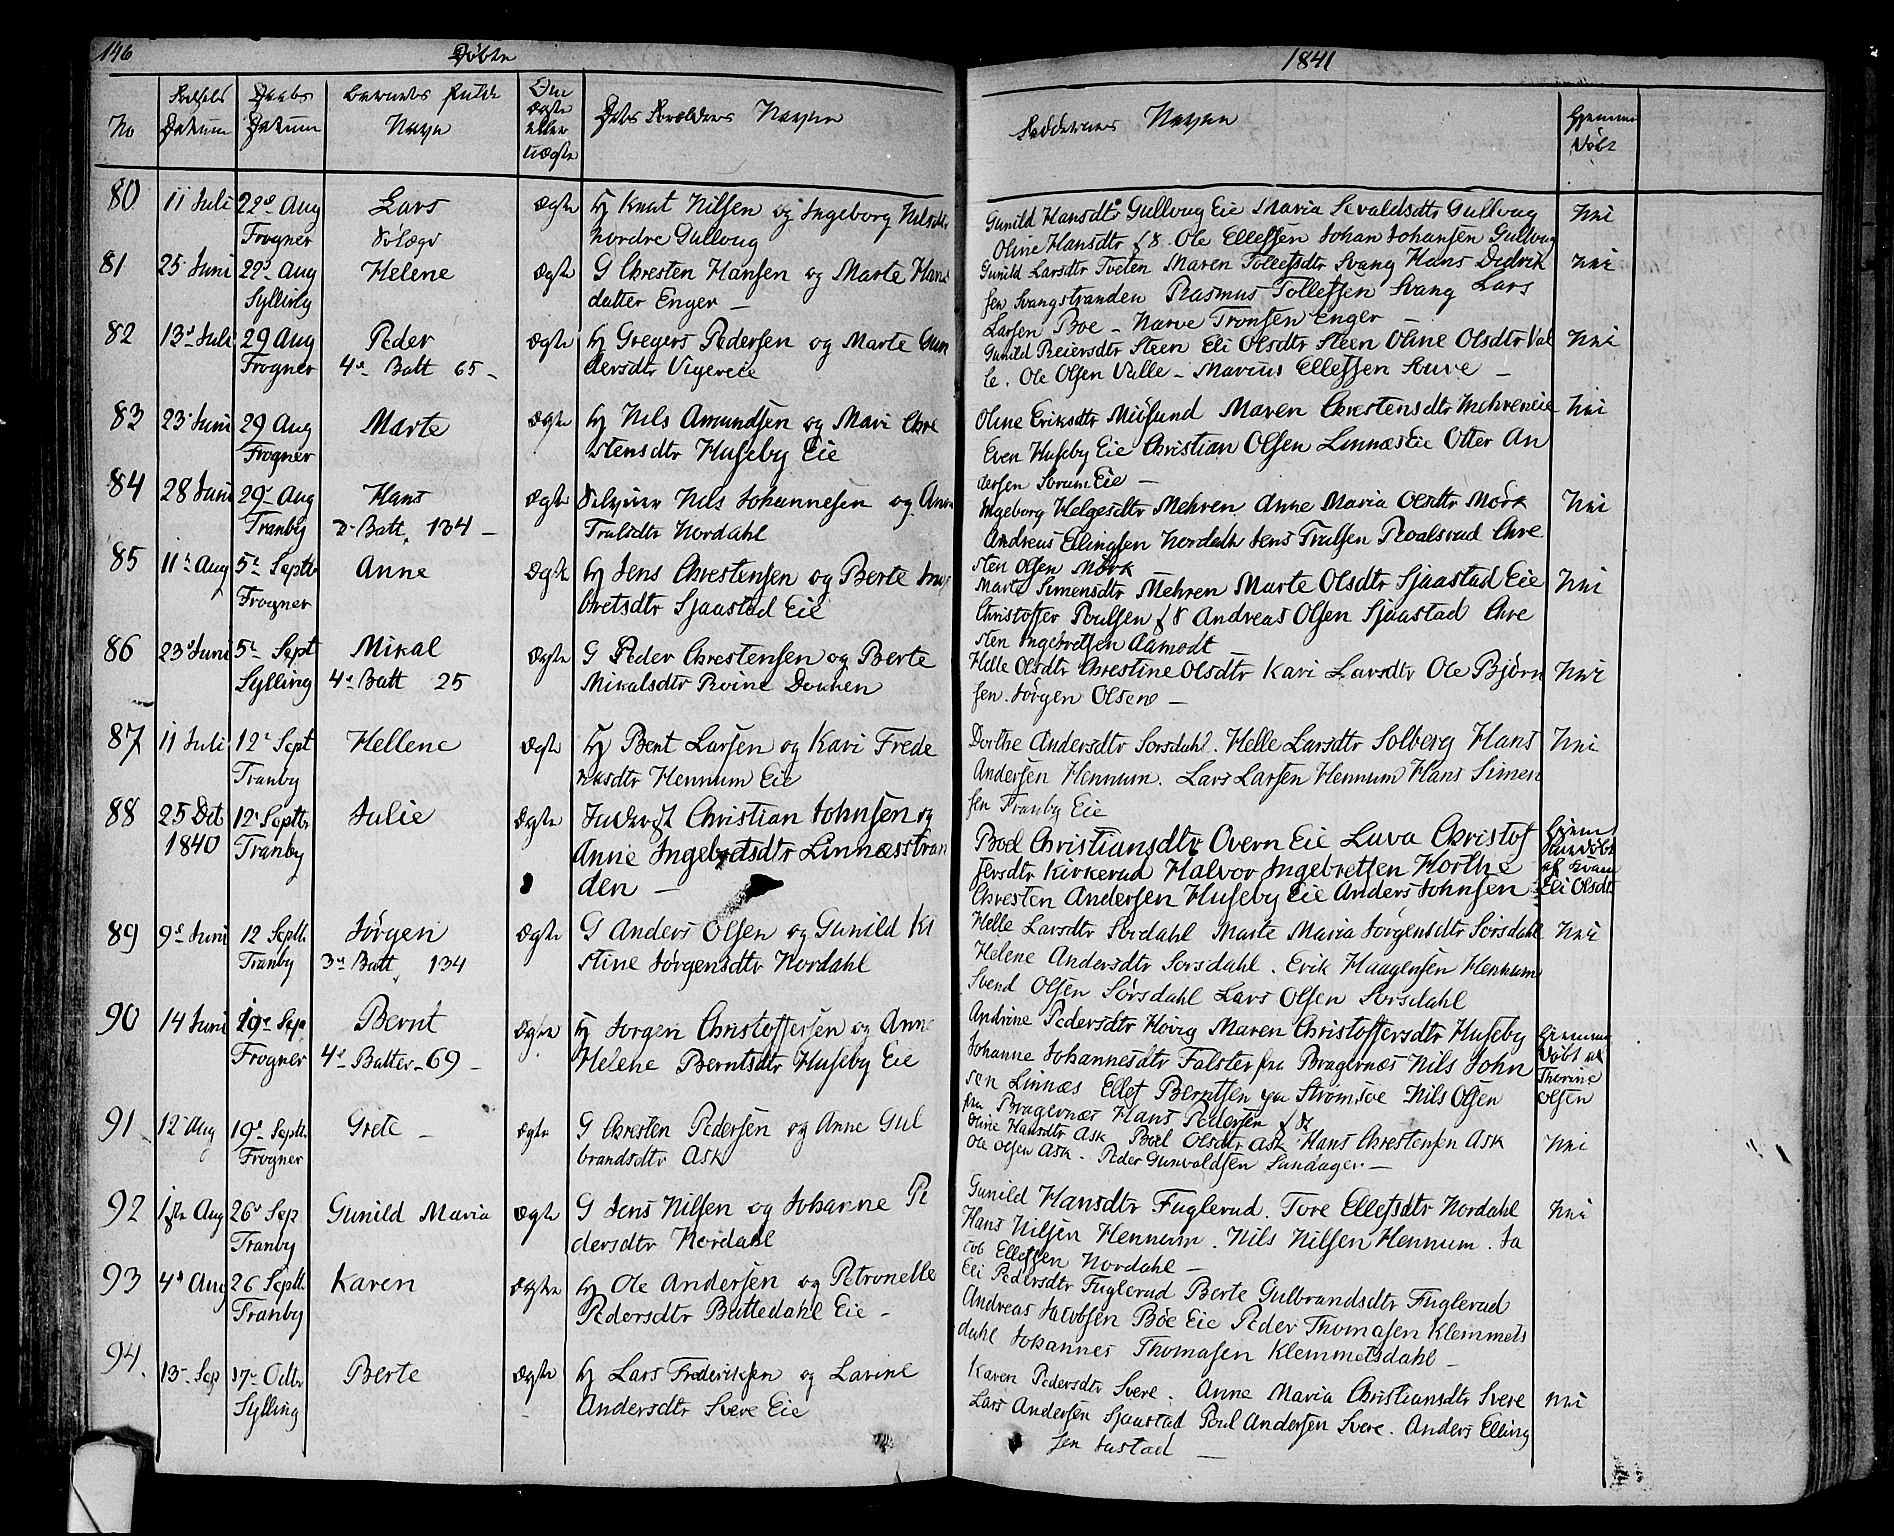 146
Døbte
1841
No
Fødsels Datum
Daabs Datum
Barnets fulde Navn
Om ægte eller uægte
Dets Forældres Navne
Faddernes Navne
Hjemme døbt
80
11 Juli
22de Aug Frogner
Lars
ægte
Hj Knut Nilsen og Ingeborg Nilsdtr
Nordre Gulloug
Gunild Hansdtr Gulloug Eie Maria
Gulloug
Oline Hansdtr Ole Ellefsen Johan Johansen Gulloug
Nei
81
25 Juni
22d Aug Sylling
Helene
ægte
G Chresten Hansen og Marte Hans
datter Enger —
Gunild Larsdtr Tveten Maren Tollefsdtr Svang Hans Didrik
sen Svangstranden Rasmus Tollefsen Svang Lars
Larsen Boe – Narve Tronsen Enger —
Nei
82
13d Juli
29 Aug Frogner
Peder
4d Batt 65 –
ægte
Hj Gregers Pedersen og Marte Gun
dersdtr Vigereie
Gunild Reiersdtr Steen Eli Olsdtr Steen Oline Olsdtr Val
le. Ole Olsen Valle – Marius Ellefsen —
Nei
83
23 Juni
29 Aug Frogner
Marte
ægte
Hj Nils Amundsen og Mari Chre
stensdtr Huseby Eie
Oline Eriksdtr Misund Maren Chrestensdtr Mehreneie
Even Huseby Eie Christian Olsen Linnæs Eie Otter An
dersen Sorum Eie —
Nei
84
28 Juni
29 Aug Tranby
Hans
D. Batt. 134 –
ægte
Nils Johannesen og Anne
Trulsdtr Nordahl
Ingeborg Helgesdtr Mehren Anne Maria Olsdtr Mörk
Andreas Ellingsen Nordahl Jens Trulsen Roalsrud Chre
sten Olsen Mörk
Nei
85
11 Aug
5te Septbr Frogner
Anne
ægte
Hj Jens Chrestensen og Berte Inge
bretsdtr Sjaastad Eie
Marte Simensdtr Mehren Marte Olsdtr Sjaastad Eie
Christoffer Poulsen Andreas Olsen Sjaastad Chre
sten Ingebretsen Aamodt
Nei
86
23d Juni
5te Sept Sylling
Mikal
4d Batt 25
ægte
G Peder Chrestensen og Berte
Mikalsdtr Rvine Dokken
Helle Olsdtr Chrestine Olsdtr Kari Larsdtr Ole Bjørn
sen. Jørgen Olsen —
Nei
87
11 Juli
12te Sept Tranby
Hellene
ægte
Hj Bent Larsen og Kari Frede
riksdtr Hennum Eie
Dorthe Andersdtr Sorsdahl. Helle Larsdtr Solberg Hans
Andersen Hennum. Lars Larsen Hennum Hans Simen
sen Tranby Eie
Nei
88
25 Det 1840
12te Septbr Tranby
Julie
ægte
Christian Johnsen og
Anne Ingebretsdtr Linnæsstran
den —
Boel Christiansdtr Overn Eie Lava Christof
fersdtr Kirkerud Halvor Ingebretsen Horthe
Chresten Andersen Huseby Eie Anders Johnsen
Hjem
døbt
af
Eli Olsdt
89
9d Juni
12 Septbr Tranby
Jørgen
3d Batt. 134
ægte
G Anders Olsen og Gunild Ki
stine Jørgensdtr Nordahl
Helle Larsdtr Sordahl Marte Maria Jørgensdtr Sorsdahl
Helene Andersdtr Sorsdahl. Erik Haagensen Hennum
Svend Olsen Sörsdahl Lars Olsen Sorsdahl
Nei
90
14 Juni
19de Sep Frogner
Bernt
4d Batter – 69 –
ægte
Hj Jorgen Christoffersen og Anne
Helene Berntsdtr Huseby Eie
Andrine Pedersdtr Hovig Maren Christoffersdtr Huseby
Johanne Johannesdtr Falster fra Bragernæs Nils John
sen Linnæs Ellef Berntsen fra Stromsoe Nils Olsen
fra Bragernæs Hans Pedersen
Hjemme
døbt af
Thorine
Olsen
91
12 Aug
19d Septbr Frogner
Grete –
ægte
G Chresten Pedersen og Anne Gul
brandsdtr Ask
Oline Hansdtr Ask Boel Olsdtr Ask Hans Chrestensen Ask
Ole Olsen Ask. Peder Gunvaldsen Sundager —
Nei
92
1ste Aug
26d Sep Tranby
Gunild Maria
ægte
G Jens Nilsen og Johanne Pe
dersdtr Nordahl
Gunild Hansdtr Fuglerud. Tore Ellefsdtr Nordahl
Hans Nilsen Hennum. Nils Nilsen Hennum. Ja
cob Ellefsen Nordahl —
Nei
93
4d Aug
26 Septbr Tranby
Karen
ægte
Hj Ole Andersen og Petronelle
Pedersdtr Buttedahl Eie –
Eli Pedersdtr Fuglerud Berte Gulbrandsdtr Fuglerud
Andreas Jacobsen Böe Eie Peder Thomasen Klemmets
dahl Johannes Thomasen Klemmetsdahl —
94.
13 Sep
17de Octbr Sylling
Berte
ægte
Hj Lars Frederiksen og Lavine
Andersdtr Svere Eie
Karen Pedersdtr Svere. Anne Maria Christiansdtr Svere
Lars Andersen Sjaastad Poul Andersen Svere. Anders Elling
sen Sastad —
Nei